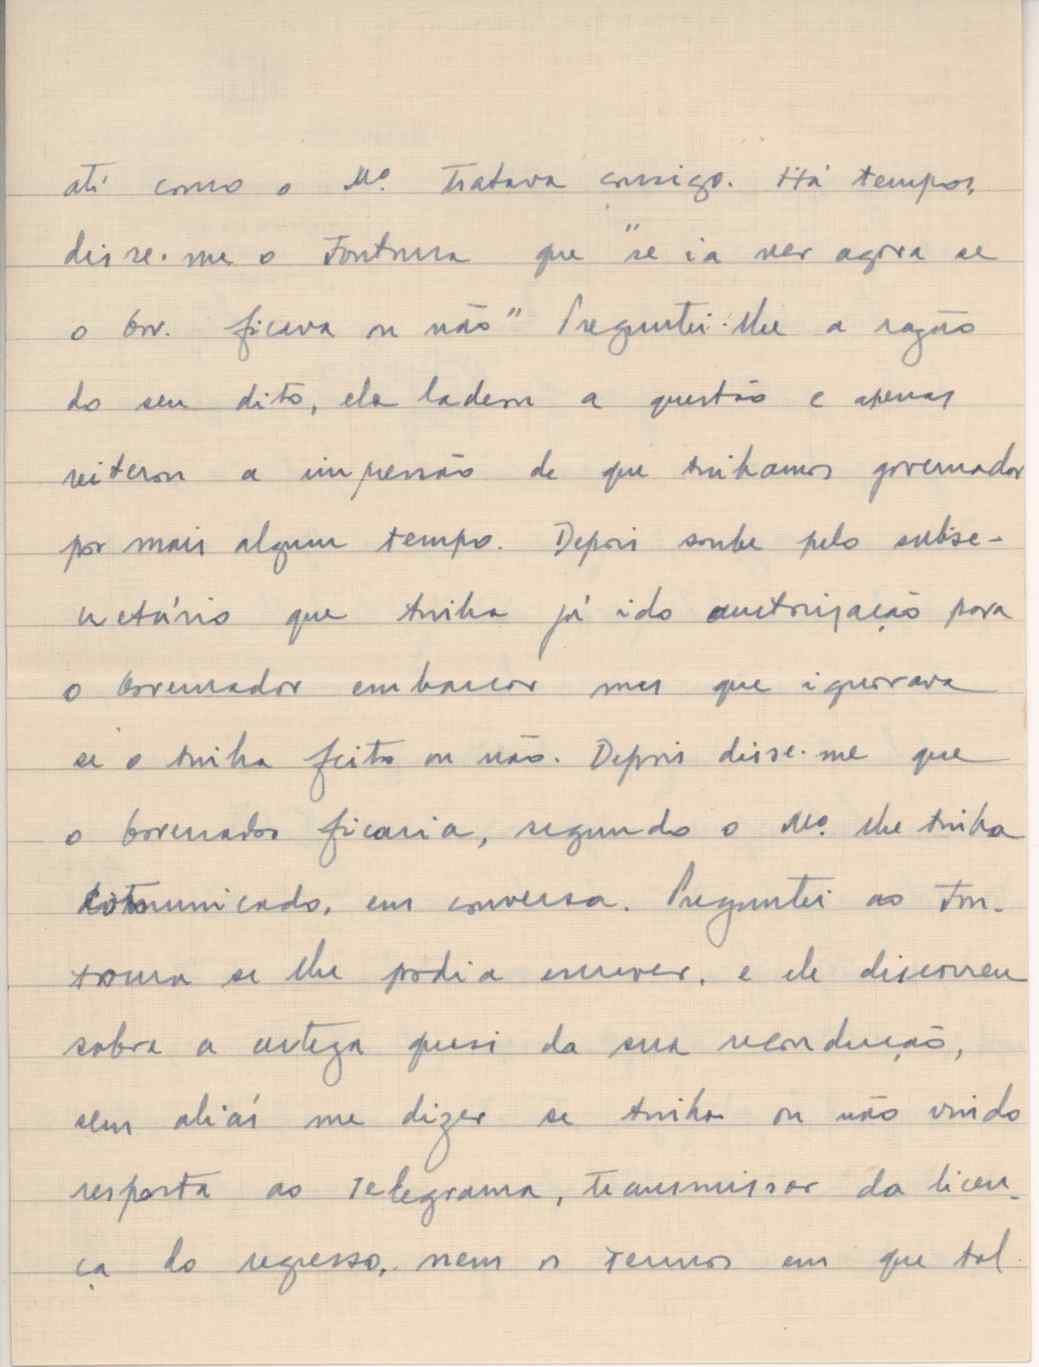 até como o Mº. tratava consigo. Há tempos,
disse-me o Fontoura que "se ia ver agora se
o Gov. ficava ou não" Preguntei-lhe a razão
do seu dito, ele ladeou a questão e apenas
reiterou a impressão de que tinhamos governador
por mais algum tempo. Depois soube pelo subse-
cretário que tinha já ido autorização para
o Governador embarcar mas que ignorava
se o tinha feito ou não. Depois disse-me que
o Governador ficaria, segundo o Mº. lhe tinha
comunicado, em conversa. Preguntei ao Fon-
toura se lhe podia escrever, e ele discorreu
sobre a certeza quasi da sua recondução,
sem aliás me dizer se tinha ou não vindo
resposta ao telegrama, transmissor da licen-
ça do regresso, nem os termos em que tal